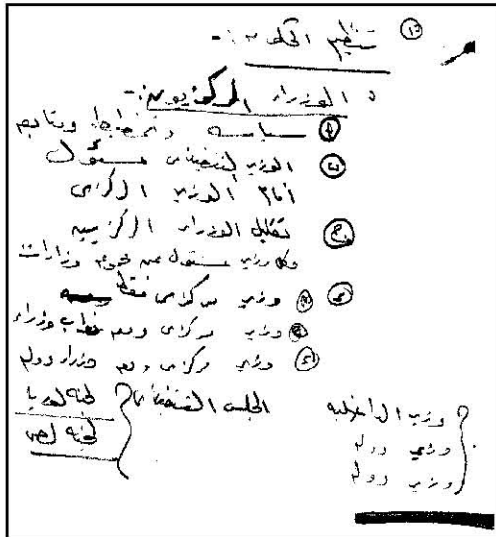 تنظيم الحكومة :-
الوزراء المركزيون :-
سياسة وتخطيط ويتابع
الوزير التنفيذى مسئول
أمام الوزير المركزى
تقليل الوزراء المركزيين
وكل وزير مسئول عن مجموعة وزارات
وزير مركزى فقط
وزير مركزى ومعه نواب وزراء
وزير مركزى ومعه وزراء دولة
المجلس التنفيذى
لجنة
لجنة
وزير الداخلية
وزير دولة
وزير دولة